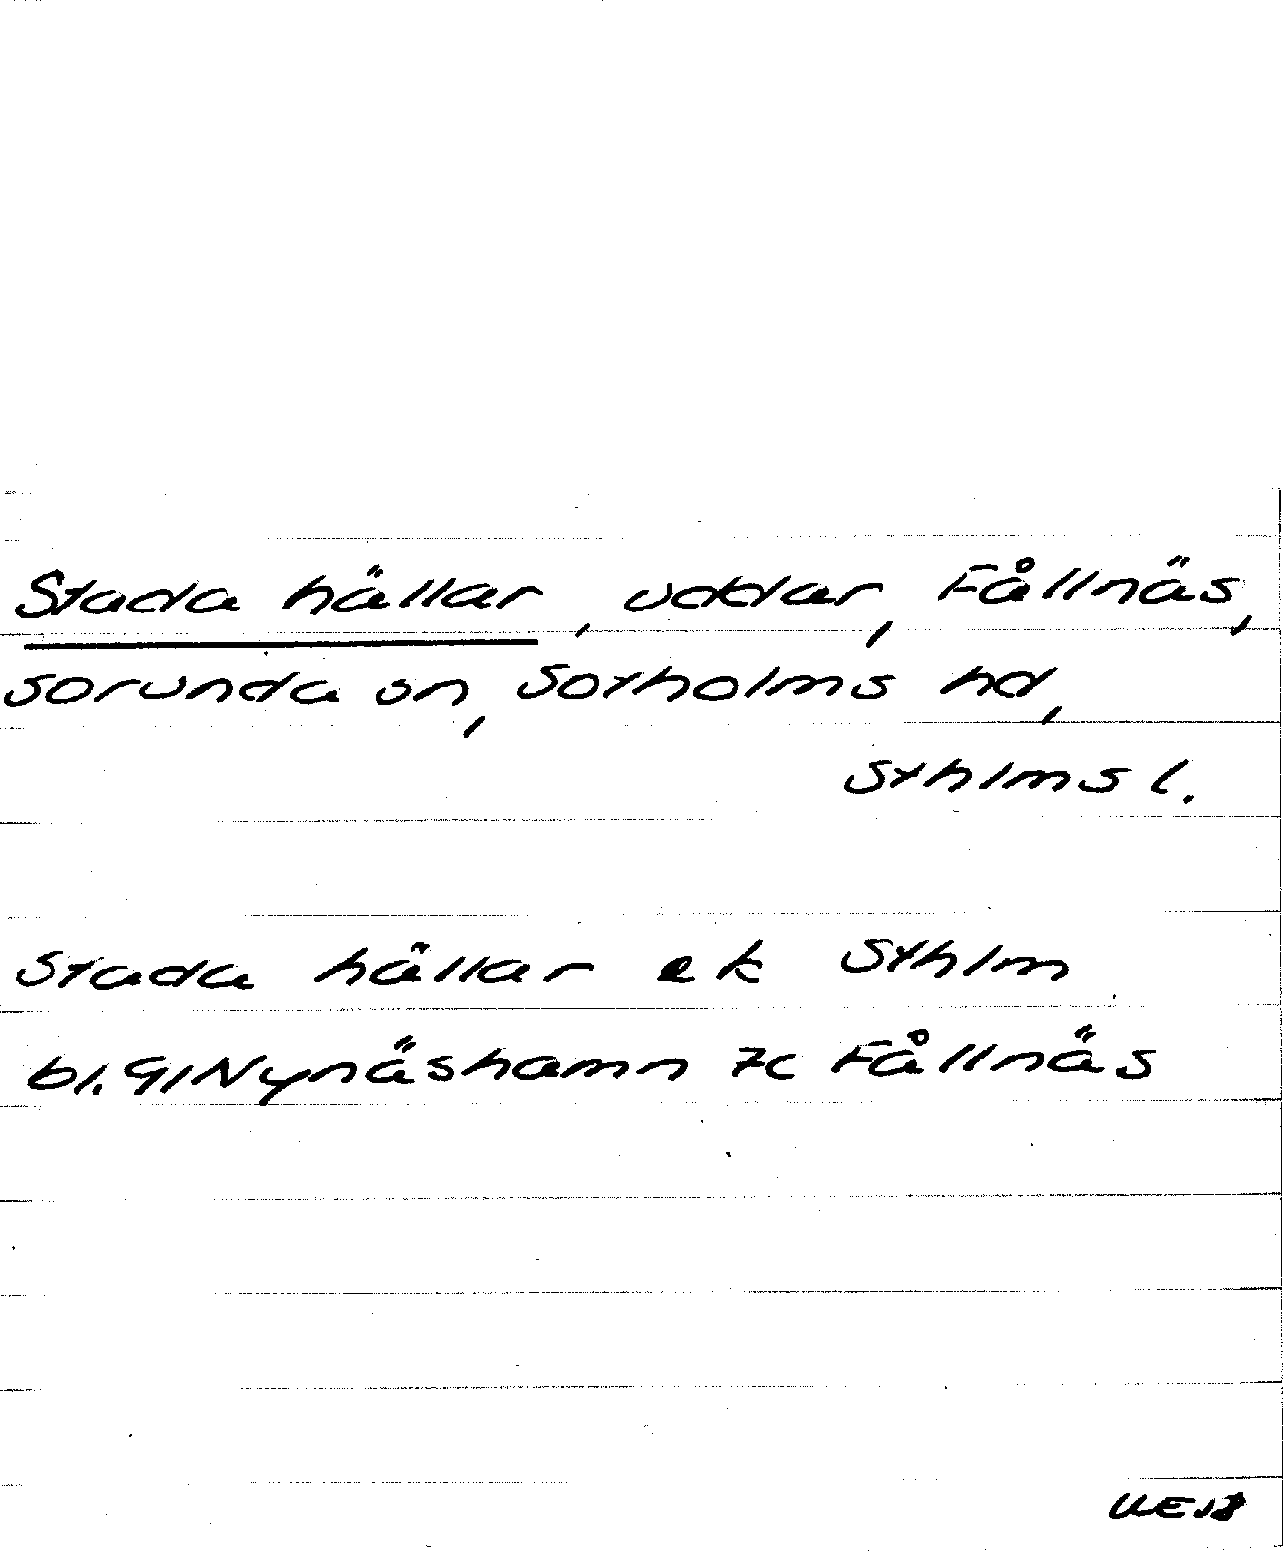 Stada hällar, uddar, Fållnäs,
Sorunda sn, Sotholms hd,
Sthlms l.
Stada hällar ek Sthlm
bl. 9I Nynäshamn 7c Fållnäs